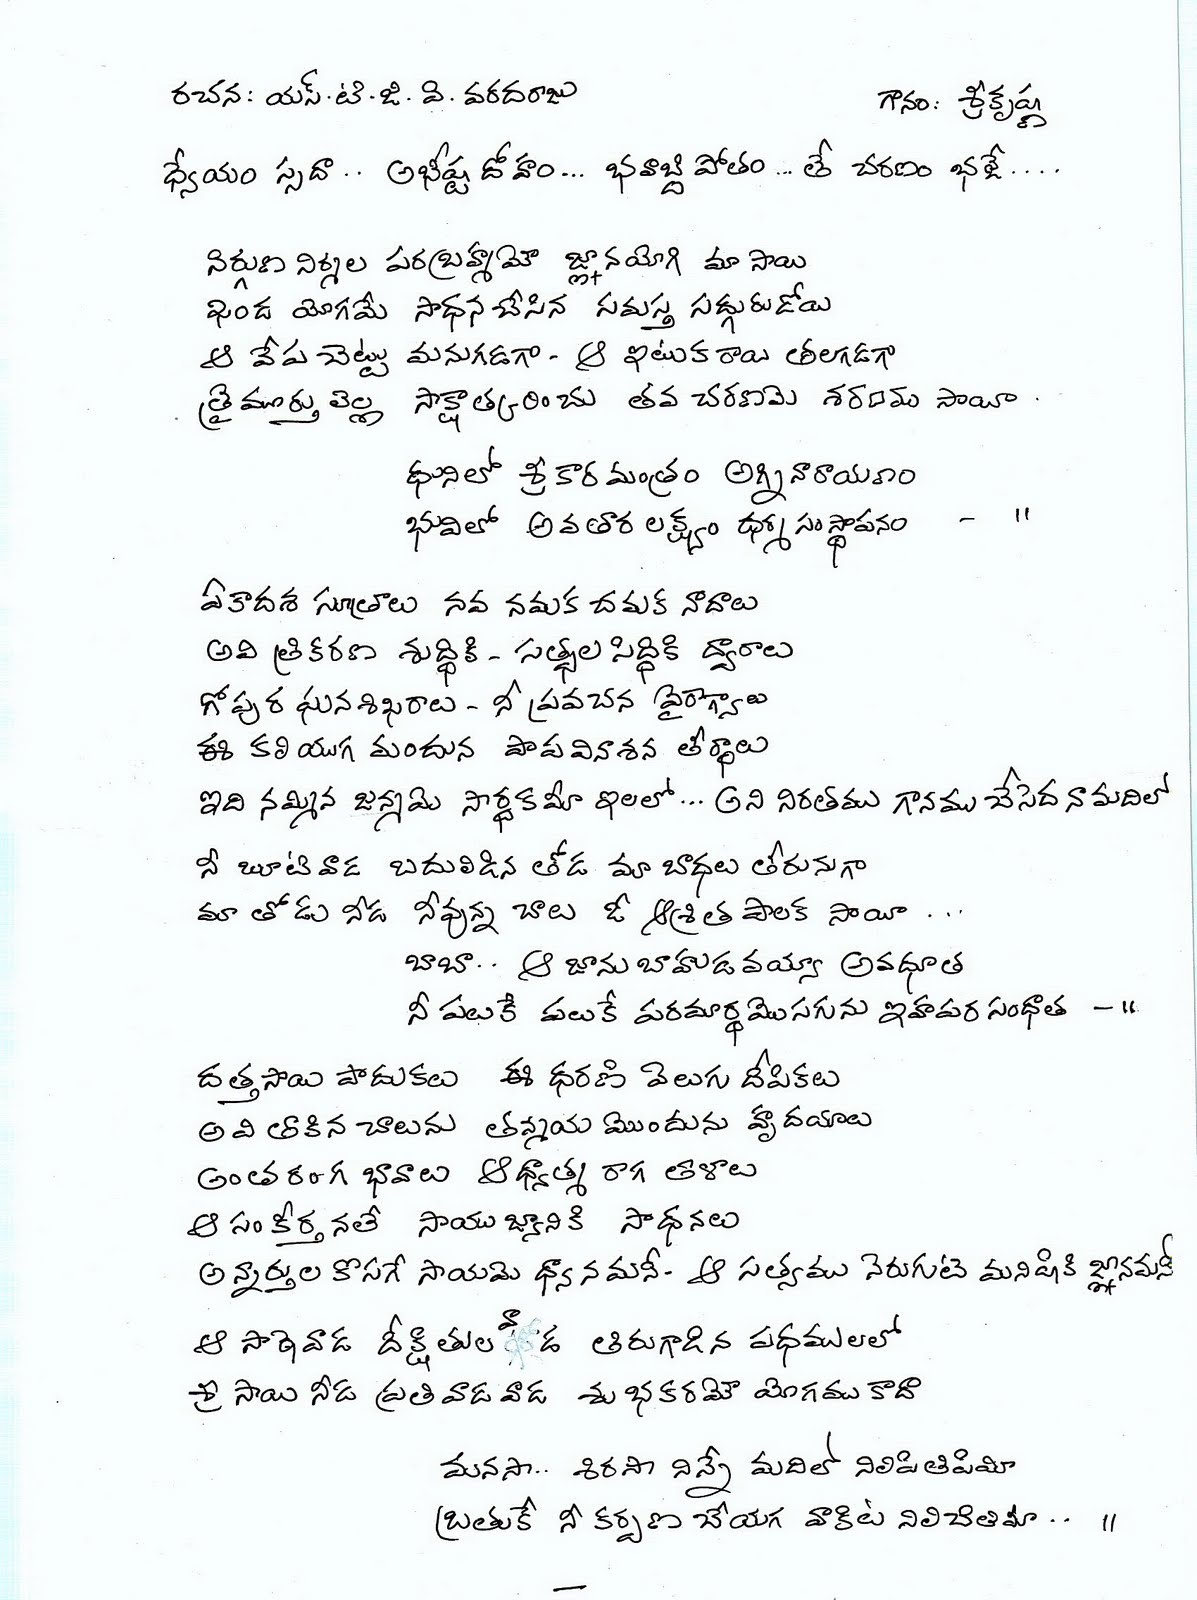 రచన: యస్.టి.జి.వి.వరదరాజు గానం: శ్రీకృష్ణ
ధ్యేయం స్సదా.. అభీష్ట దోహం... భవాబ్ది పోతం... తే చరణం భజే....
నిర్గుణ నిర్మల పరబ్రహ్మమో జ్ఞానయోగి మా సాయి
ఖండ యోగమే సాధన చేసిన సమస్త సద్గురుడోయి
ఆ వేప చెట్టు మనుగడగా - ఆ ఇటుక రాయి తలగడగా
త్రైమూర్తు లెల్ల సాక్షాత్కరించు తవ చరణమె శరణమ్ సాయీ .
ధునిలో శ్రీకార మంత్రం అగ్నినారాయణం
భువిలో అవతార లక్ష్యం ధర్మసంస్థాపనం - "
ఏకాదశ సూత్రాలు నవ నమక చమక నాదాలు
అవి త్రికరణ శుద్ధికి - సత్ఫల సిద్ధికి ద్వారాలు
గోపుర ఘనశిఖరాలు - నీ ప్రవచన వైరాగ్యాలు
ఈ కలియుగ మందున పాపవినాశన తీర్థాలు
ఇది నమ్మిన జన్మమె సార్థకమీ ఇలలో... అని నిరతము గానము చేసెద నా మదిలో
నీ బూటివాడ బదులిడిన తోడ మా బాధలు తీరునుగా
మా తోడు నీడ నీవున్న చాలు ఓ ఆశ్రిత పాలక సాయీ ...
బాబా.. ఆ జాను బాహుడవయ్యా అవధూత
నీ పలుకే పలుకే పరమార్థమొసగును ఇహపర సంధాత - "
దత్తసాయి పాదుకలు ఈ ధరణి వెలుగు దీపికలు
అవి తాకిన చాలును తన్మయ మొందును హృదయాలు
అంతరంగ భావాలు ఆధ్యాత్మ రాగ తాళాలు
ఆ సంకీర్తనతే సాయుజ్యానికి సాధనలు
అన్నార్తుల కొసగే సాయమె ధ్యానమనీ - ఆ సత్వము నెరుగుటె మనిషికి జ్ఞానమనీ
ఆ సాఠెవాడ దీక్షితుల వాడ తిరుగాడిన పధములలో
శ్రీ సాయి నీడ ప్రతి వాడ వాడ శుభకరమో యోగము కాదా
మనసా.. శిరసా నిన్నే మదిలో నిలిపితిమీ
బ్రతుకే నీ కర్పణ చేయగ వాకిట నిలిచితిమీ.. "